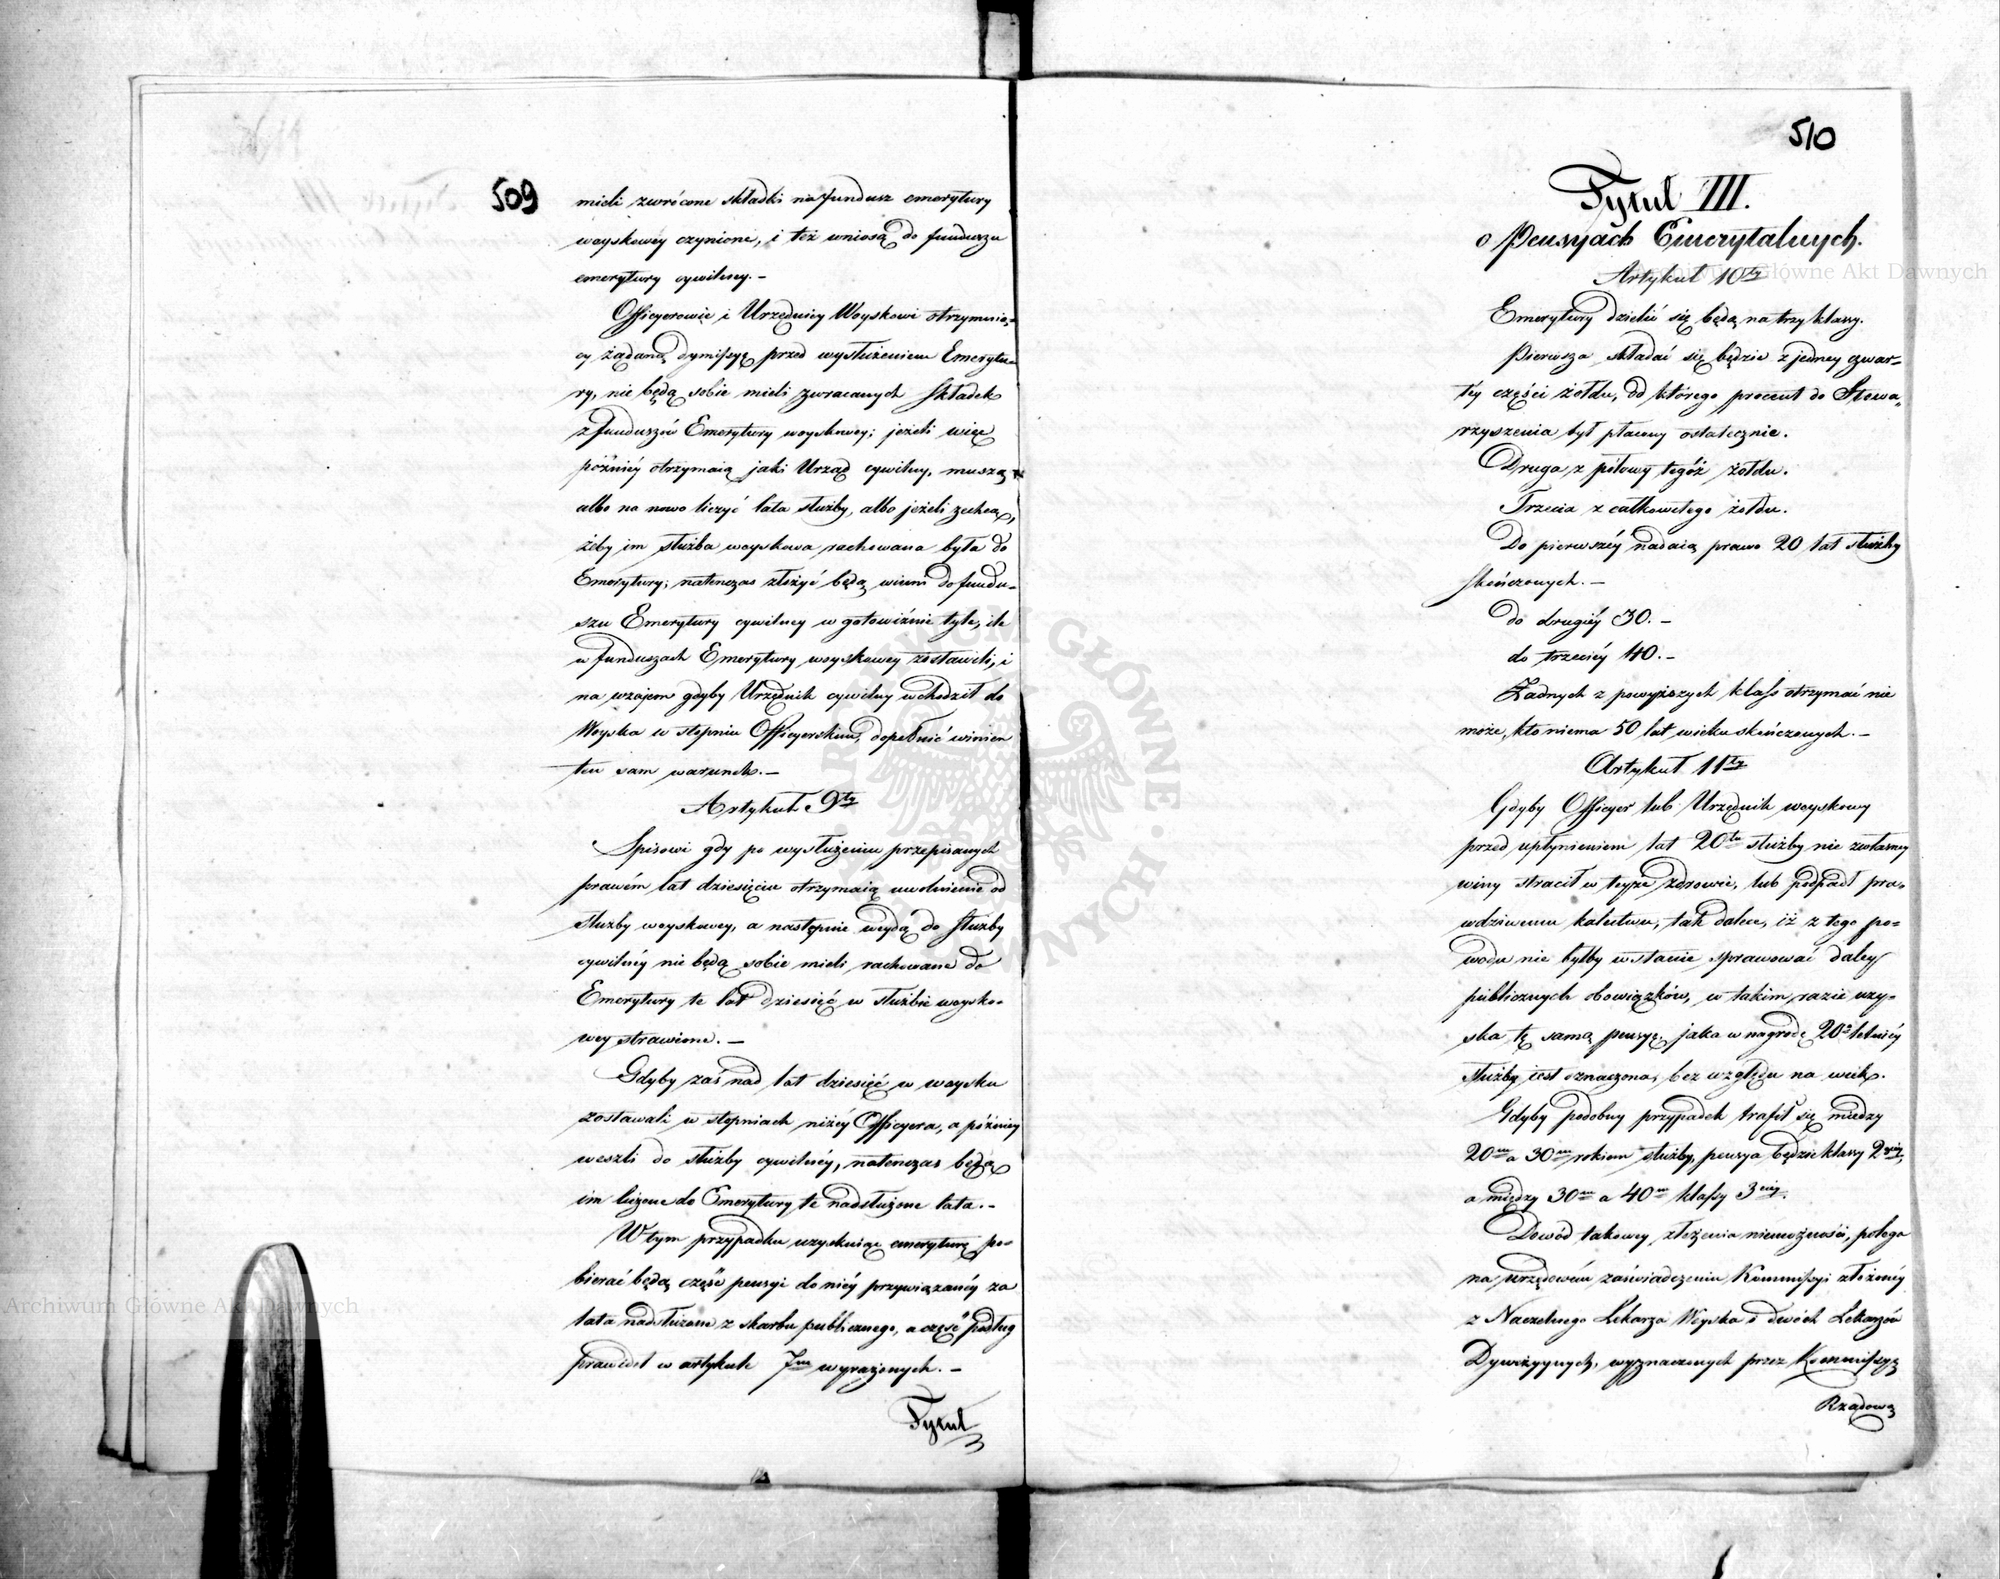 509
mieli zwrócone składki na fundusz emerytury
woyskowey czynione, i też wniosą do funduszu
emerytury cywilney. –
Officyerowie i Urzędnicy Woyskowi otrzymuią-
cy żądaną dymissyę przed wysłużeniem Emerytu-
ry, nie będą sobie mieli zwracanych Składek
z funduszów Emerytury woyskowey; jeżeli więc
późniéy otrzymaią jaki Urząd cywilny, muszą
albo na nowo liczyć lata służby, albo jeżeli zechcą,
żeby im służba woyskowa rachowana była do
Emerytury; natenczas złożyć będą winni do fundu-
szu Emerytury cywilney w gotowiźnie tyle, ile
w funduszach Emerytury woyskowey zostawili, i
na wzajem gdyby Urzędnik cywilny wchodził do
Woyska w stopniu Officyerskim, dopełnić winien
ten sam warunek. –
Artykuł 9ty
Spisowi gdy po wysłużeniu przepisanych
prawém lat dziesięciu otrzymaią uwolnienie od
służby woyskowey, a następnie weydą do służby
cywilnéy nie będą sobie mieli rachowane do
Emerytury te lat dziesięć w służbie woysko-
wey strawione. –
Gdyby zaś nad lat dziesięć w woysku
zostawali w stopniach niżéy Officyera, a późniey
weszli do służby cywilnéy, natenczas będą
im liczone do Emerytury te nadsłużone lata. –
W tym przypadku uzyskuiąc emeryturę po-
bierać będą część pensyi do niéy przywiązanéy za
lata nadsłużone z skarbu publicznego, a część podług
prawideł w artykule 7m wyrażonych. –
Tytuł
510
Tytuł III.
o Pensyach Emerytalnych.
Artykuł 10ty
Emerytury dzielić się będą na trzy klassy.
Pierwsza składać się będzie z jedney czwar-
téy części żołdu, od którego procent do Stowa-
rzyszenia był płacony ostatecznie.
Druga z połowy tegóż żołdu.
Trzecia z całkowitego żołdu.
Do pierwszéy nadaią prawo 20 lat służby
skończonych. –
do drugiéy 30. –
do trzeciéy 40. –
Żadnych z powyższych klass otrzymać nie
może, kto niema 50 lat wieku skończonych. –
Artykuł 11ty
Gdyby Officyer lub Urzędnik woyskowy
przed upłynieniem lat 20tu służby nie z własney
winy stracił w teyże zdrowie, lub podpadł pra-
wdziwemu kalectwu, tak dalece, iż z tego po-
wodu nie byłby w stanie sprawować daley
publicznych obowiązków, w takim razie uzy-
ska tę samą pensyę, jaka w nagrodę 20o letniéy
służby iest oznaczona, bez względu na wiek.
Gdyby podobny przypadek trafił się miedzy
20m a 30m rokiem służby, pensya będzie klassy 2giéy,
a między 30m a 40m klassy 3ciéy.
Dowód takowey złożenia niemożności, polega
na urzędowém zaświadczeniu Kommissyi złożonéy
z Naczelnego Lekarza Woyska i dwóch Lekarzów
Dywizyynych, wyznaczonych przez Kommissyą
Rządową
Archiwum Główne Akt Dawnych
Archiwum Główne Akt Dawnych